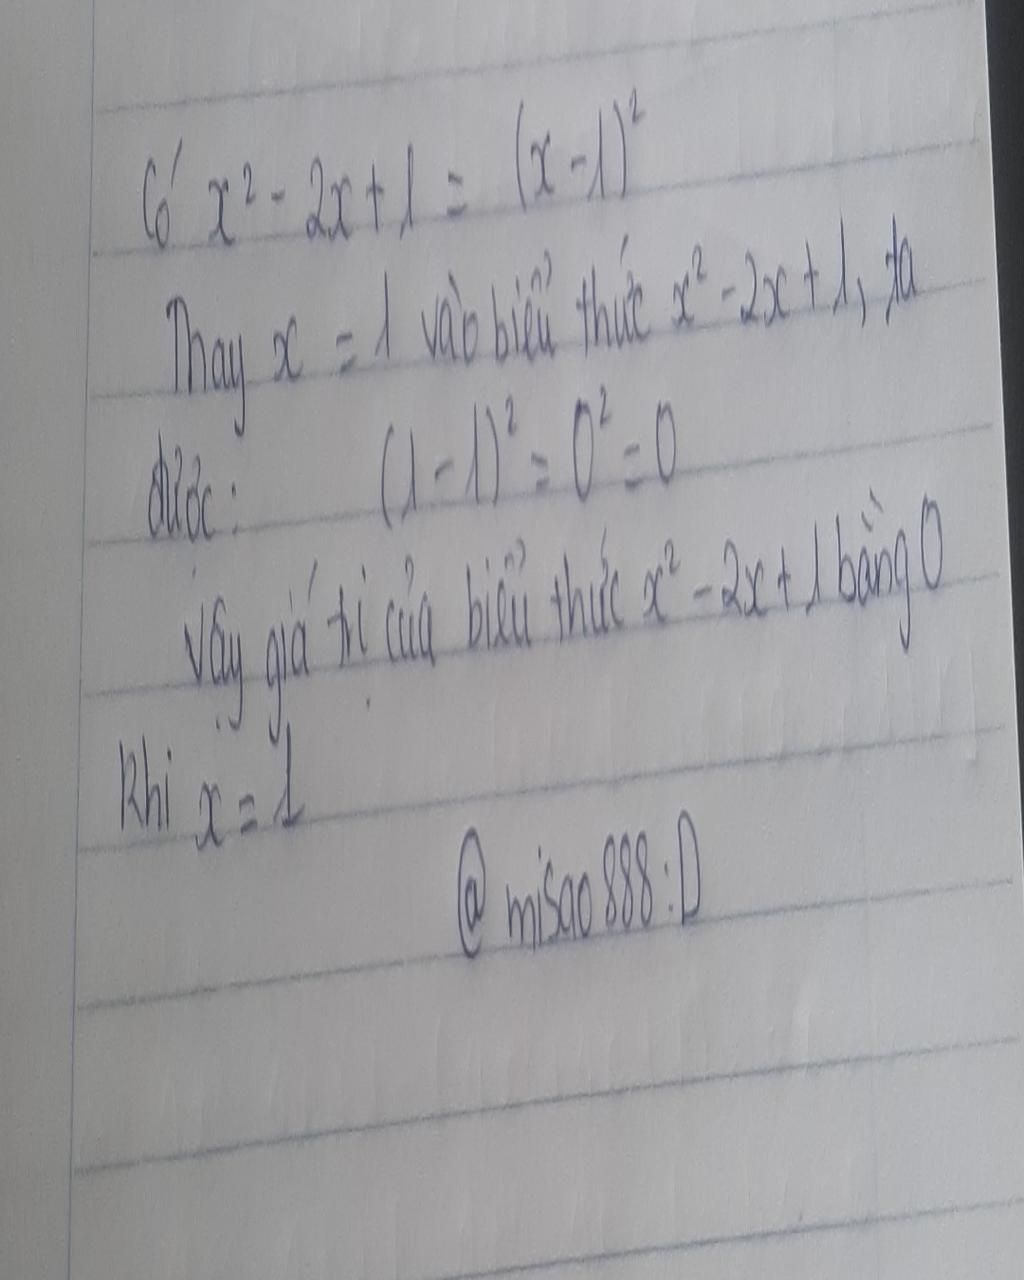 Có x² - 2x + 1 = (x - 1)²
Thay x = 1 vào biểu thức x² - 2x + 1, ta
được: (1 - 1)² = 0² = 0
Vậy giá trị của biểu thức x² - 2x + 1 bằng 0
khi x = 1
@misao888:D